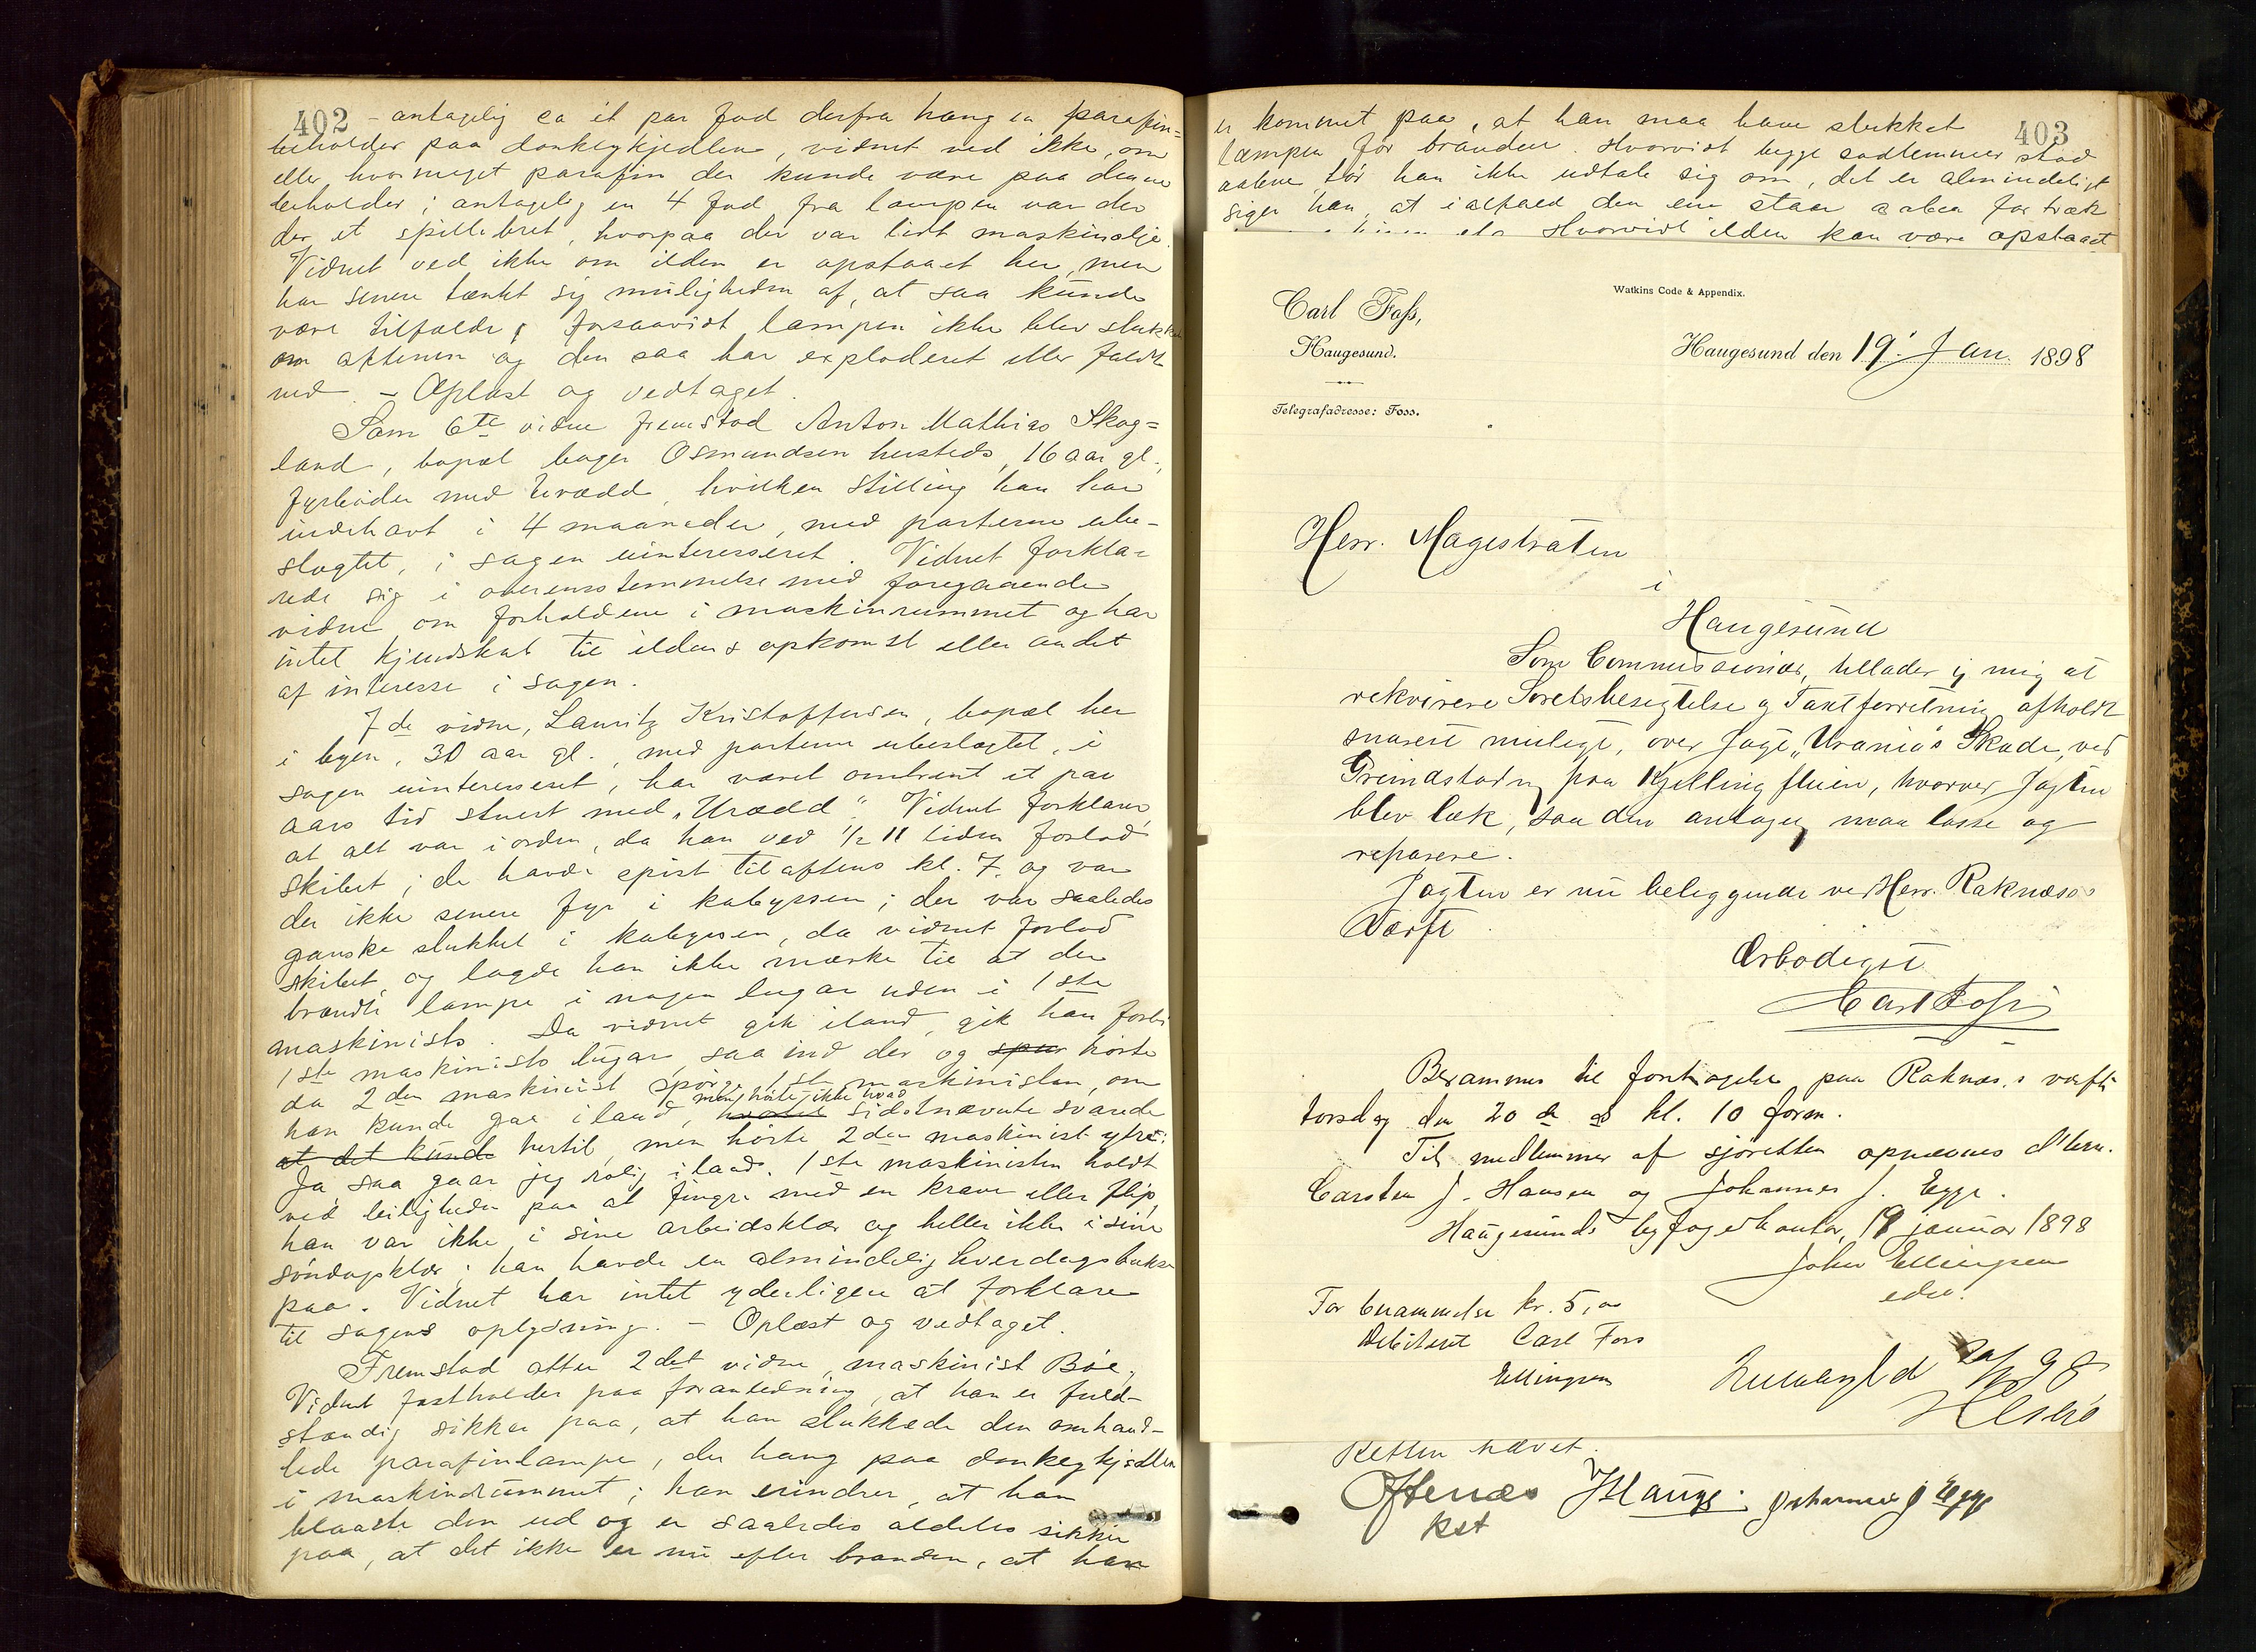 402 - antagelig ca et par fod derfra hang en parafin=
beholder paa donkeykjedlen, vidnet ved ikke, om
eller hvormeget parafin der kunde være paa denne
beholder; antagelig en 4 fod fra lampen var der
der et spillebret, hvorpaa der var lidt maskinolje.
Vidnet ved ikke om ilden er opstaaet her, men
har senere tænkt sig muligheden af, at saa kunde
være tilfælde, forsaavidt lampen ikke blev slukket
om aftenen og den saa har exploderet eller faldt
ned. - Oplæst og vedtaget.
Som 6te vidne fremstod Anton Mathias Skog=
land, bopæl bager Osmundsen hersteds, 16 aar gl.,
fyrbøder med Urædd, hvilken stilling han har
indehavt i 4 maaneder, med parterne ube-
slegtet, i sagen uinteresseret. Vidnet forkla=
rede sig i overensstemmelse med foregaaende
vidne om forholdene i maskinrummet og har
intet kjendskab til ildens opkomst eller andet
af interesse i sagen.
7de vidne, Lauritz Kristoffersen, bopæl her
i byen, 30 aar gl., med parterne ubeslægtet, i
sagen uinteresseret, har været omtrent et par
aars tid stuert med "Urædd". Vidnet forklarer,
at alt var i orden, da han ved 1/2 11 tiden forlod
skibet; de havde spist til aftens kl. 7, og var
der ikke senere fyr i kabyssen; der var saaledes
ganske slukket i kabyssen, da vidnet forlod
skibet, og lagde han ikke mærke til at der
brændte lampe i nogen lugar uden i 1ste
maskinists. Da vidnet gik iland, gik han forbi
1ste maskinists lugar, saa ind der og spur hørte
da 2den maskinist spørge 1ste maskinisten, om
men hørte ikke hvad
han kunde gaa iland, sidstnævnte svarede
at det kunde hertil, men hørte 2den maskinist ytre:
Ja saa gaar jeg rolig iland. 1ste maskinisten holdt
ved leiligheden paa at fingre med en krave eller flip,
han var ikke i sine arbeidsklær og heller ikke i sine
søndagsklær; han havde en almindelig hverdagsbukse
paa. Vidnet har intet yderligere at forklare
til sagens oplysning. - Oplæst og vedtaget.
Fremstod atter 2det vidne, maskinist Bøe,
Vidnet fastholder paa foranledning, at han er fuld-
stændig sikker paa, at han slukkede den omhand-
lede parafinlampe, der hang paa donkeykjedlen
i maskinrummet; han erindrer, at han
blaaste den ud og er saaledes aldeles sikker
paa, at det ikke er nu efter branden, at han
403
er kommet paa, at han maa have slukket
lampen før branden. Hvorvidt begge
aabne, tør han ikke udtale sig om, det er almindeligt
siger han, at ialfald den ene staar aaben for træk
Hvorvidt ilden kan være opstaaet
Watkins Code & Appendix.
Carl Foss,
Haugesund.
Haugesund den 19' Jan. 1898
Telegrafadresse: Foss.
Herr. Magestraten
i
Haugesund
Som Commissionær, tillader jeg mig at
rekvirere Søretsbesigtelse og Taxtforretning afholdt
snarest muligt, over Jagt "Urania's Skade, ved
Grundstødning paa Kjellingfluen, hvorved Jagten
blev læk, saa den antagelig maa losse og
reparere.
Jagten er nu beliggende ved Herr. Raknæs's
Værft.
Ærbødigst
Carl Foss
Berammes til foretagelse paa Raknæs's værft
torsdag den 20de ds kl. 10 form.
Til medlemmer af sjøretten opnævnes d'hrr.
Carsten J. Hansen og Johannes J. Egge.
Haugesunds byfogedkontor, 19 januar 1898
John Ellingsen
edsv.
For berammelse kr. 5,00
Debiteret Carl Foss
Ellingsen
98
Retten hævet.
Johannes J Egge
kst